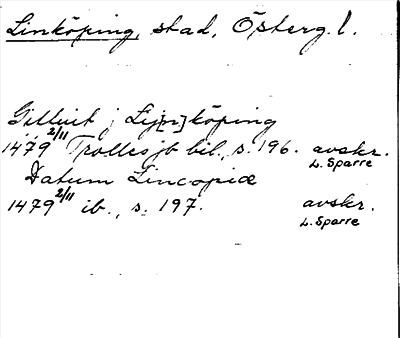 Linköping, stad, Österg. l.
Gifluit j Lij[n]köping
1479 2/11 Trolles jb bil., s. 196. avskr.
L. Sparre
Datum Lincopiæ
1479 2/11 ib., s. 197. avskr.
L. Sparre